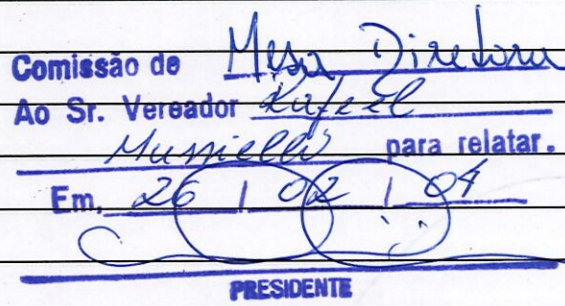 Comissão de Mesa Diretora
Ao Sr. Vereador Rafael
Musiello para relatar.
Em, 26 / 02 / 04
PRESIDENTE